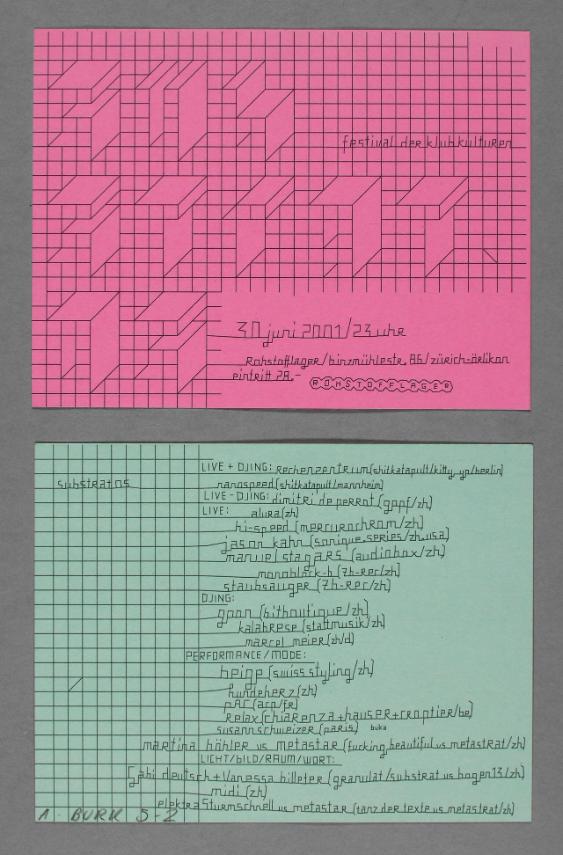 festival der klubkulturen
30 juni 2001/23 uhr
Rohstofflager/binzmühlestr. 86/zürich-örlikon
eintritt 28.-
ROHSTOFFLAGER
substrat 05
LIVE + DJING: rechenzentrum (shitkatapult/kitty_yo/berlin)
nanospeed (shitkatapult/mannheim)
LIVE-DJING: dimitri de perrot (gopf/zh)
LIVE: alura (zh)
hi-speed (mercurochrom/zh)
jason kahn (sonique.series/zh,usa)
manuel stagars (audiobox/zh)
monoblock-b (zh-rec/zh)
staubsauger (zh-rec/zh)
DJING:
goon (bithoutique/zh)
kalabrese (stattmusik/zh)
marcel meier (zh/d)
PERFORMANCE/MODE:
beige (swiss styling/zh)
hundeherz (zh)
relax (chiarenza+hauser+croptier/be)
susann schweizer (paris) buka
martina höhler vs metastar (fucking beautiful vs metastrat/zh)
LICHT/bILD/RAUM/WORT:
gabi deutsch + Vanessa billeter (granulat/substrat vs bogen13/zh)
midi (zh)
elektra Sturmschnell vs metastar (tanz der texte vs metastrat/zh)
A. BURK 5-2